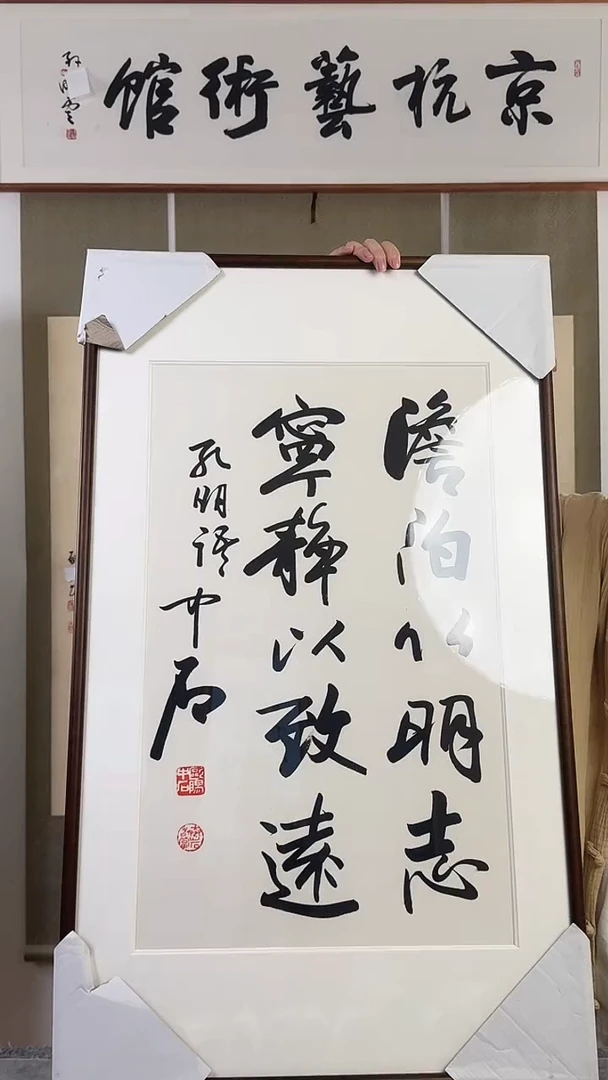 京杭藝術館
澹泊以明志
寧靜以致遠
孔明語 中石